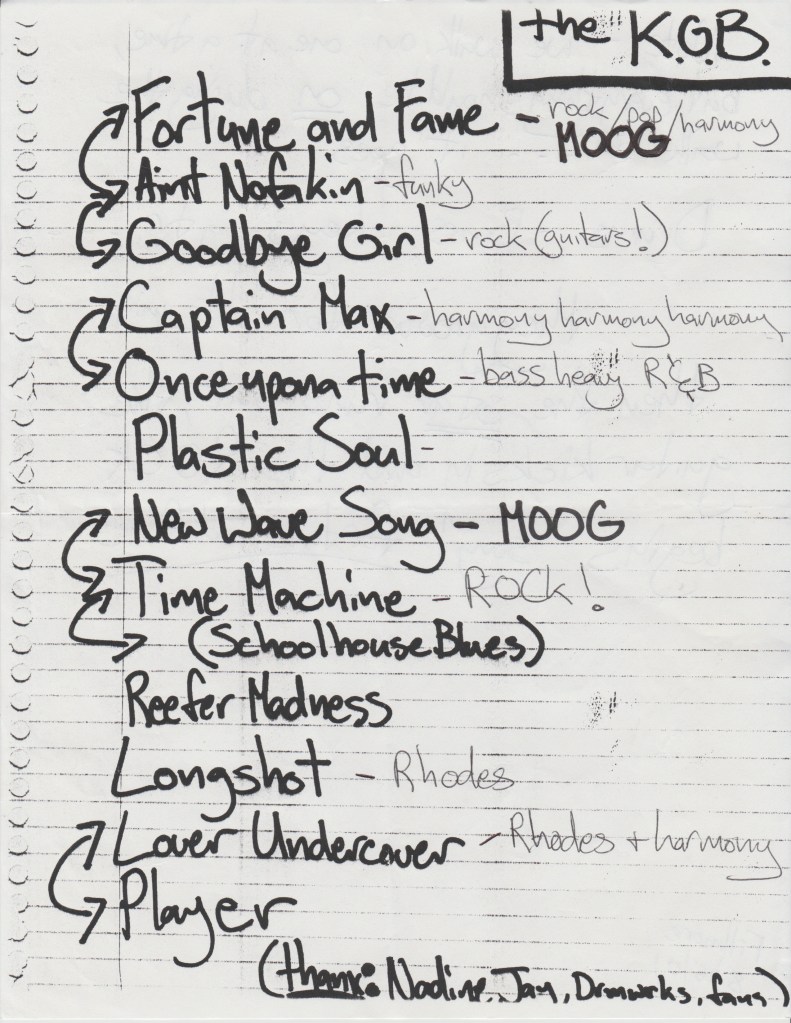 the K.G.B.
Fortune and Fame - rock/pop/harmony
MOOG
Aint Nofakin - funky
Goodbye Girl - rock (guitars!)
Captain Max - harmony harmony harmony
Once upon a time - bass heavy R&B
Plastic Soul -
New Wave Song - MOOG
Time Machine - ROCK!
(Schoolhouse Blues)
Reefer Madness
Longshot - Rhodes
Lover Undercover - Rhodes + harmony
Player
(thank: Nadine, Jay, Drmwrks, fans)